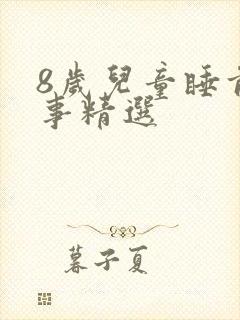 8歲兒童睡前
事精選
暮子夏